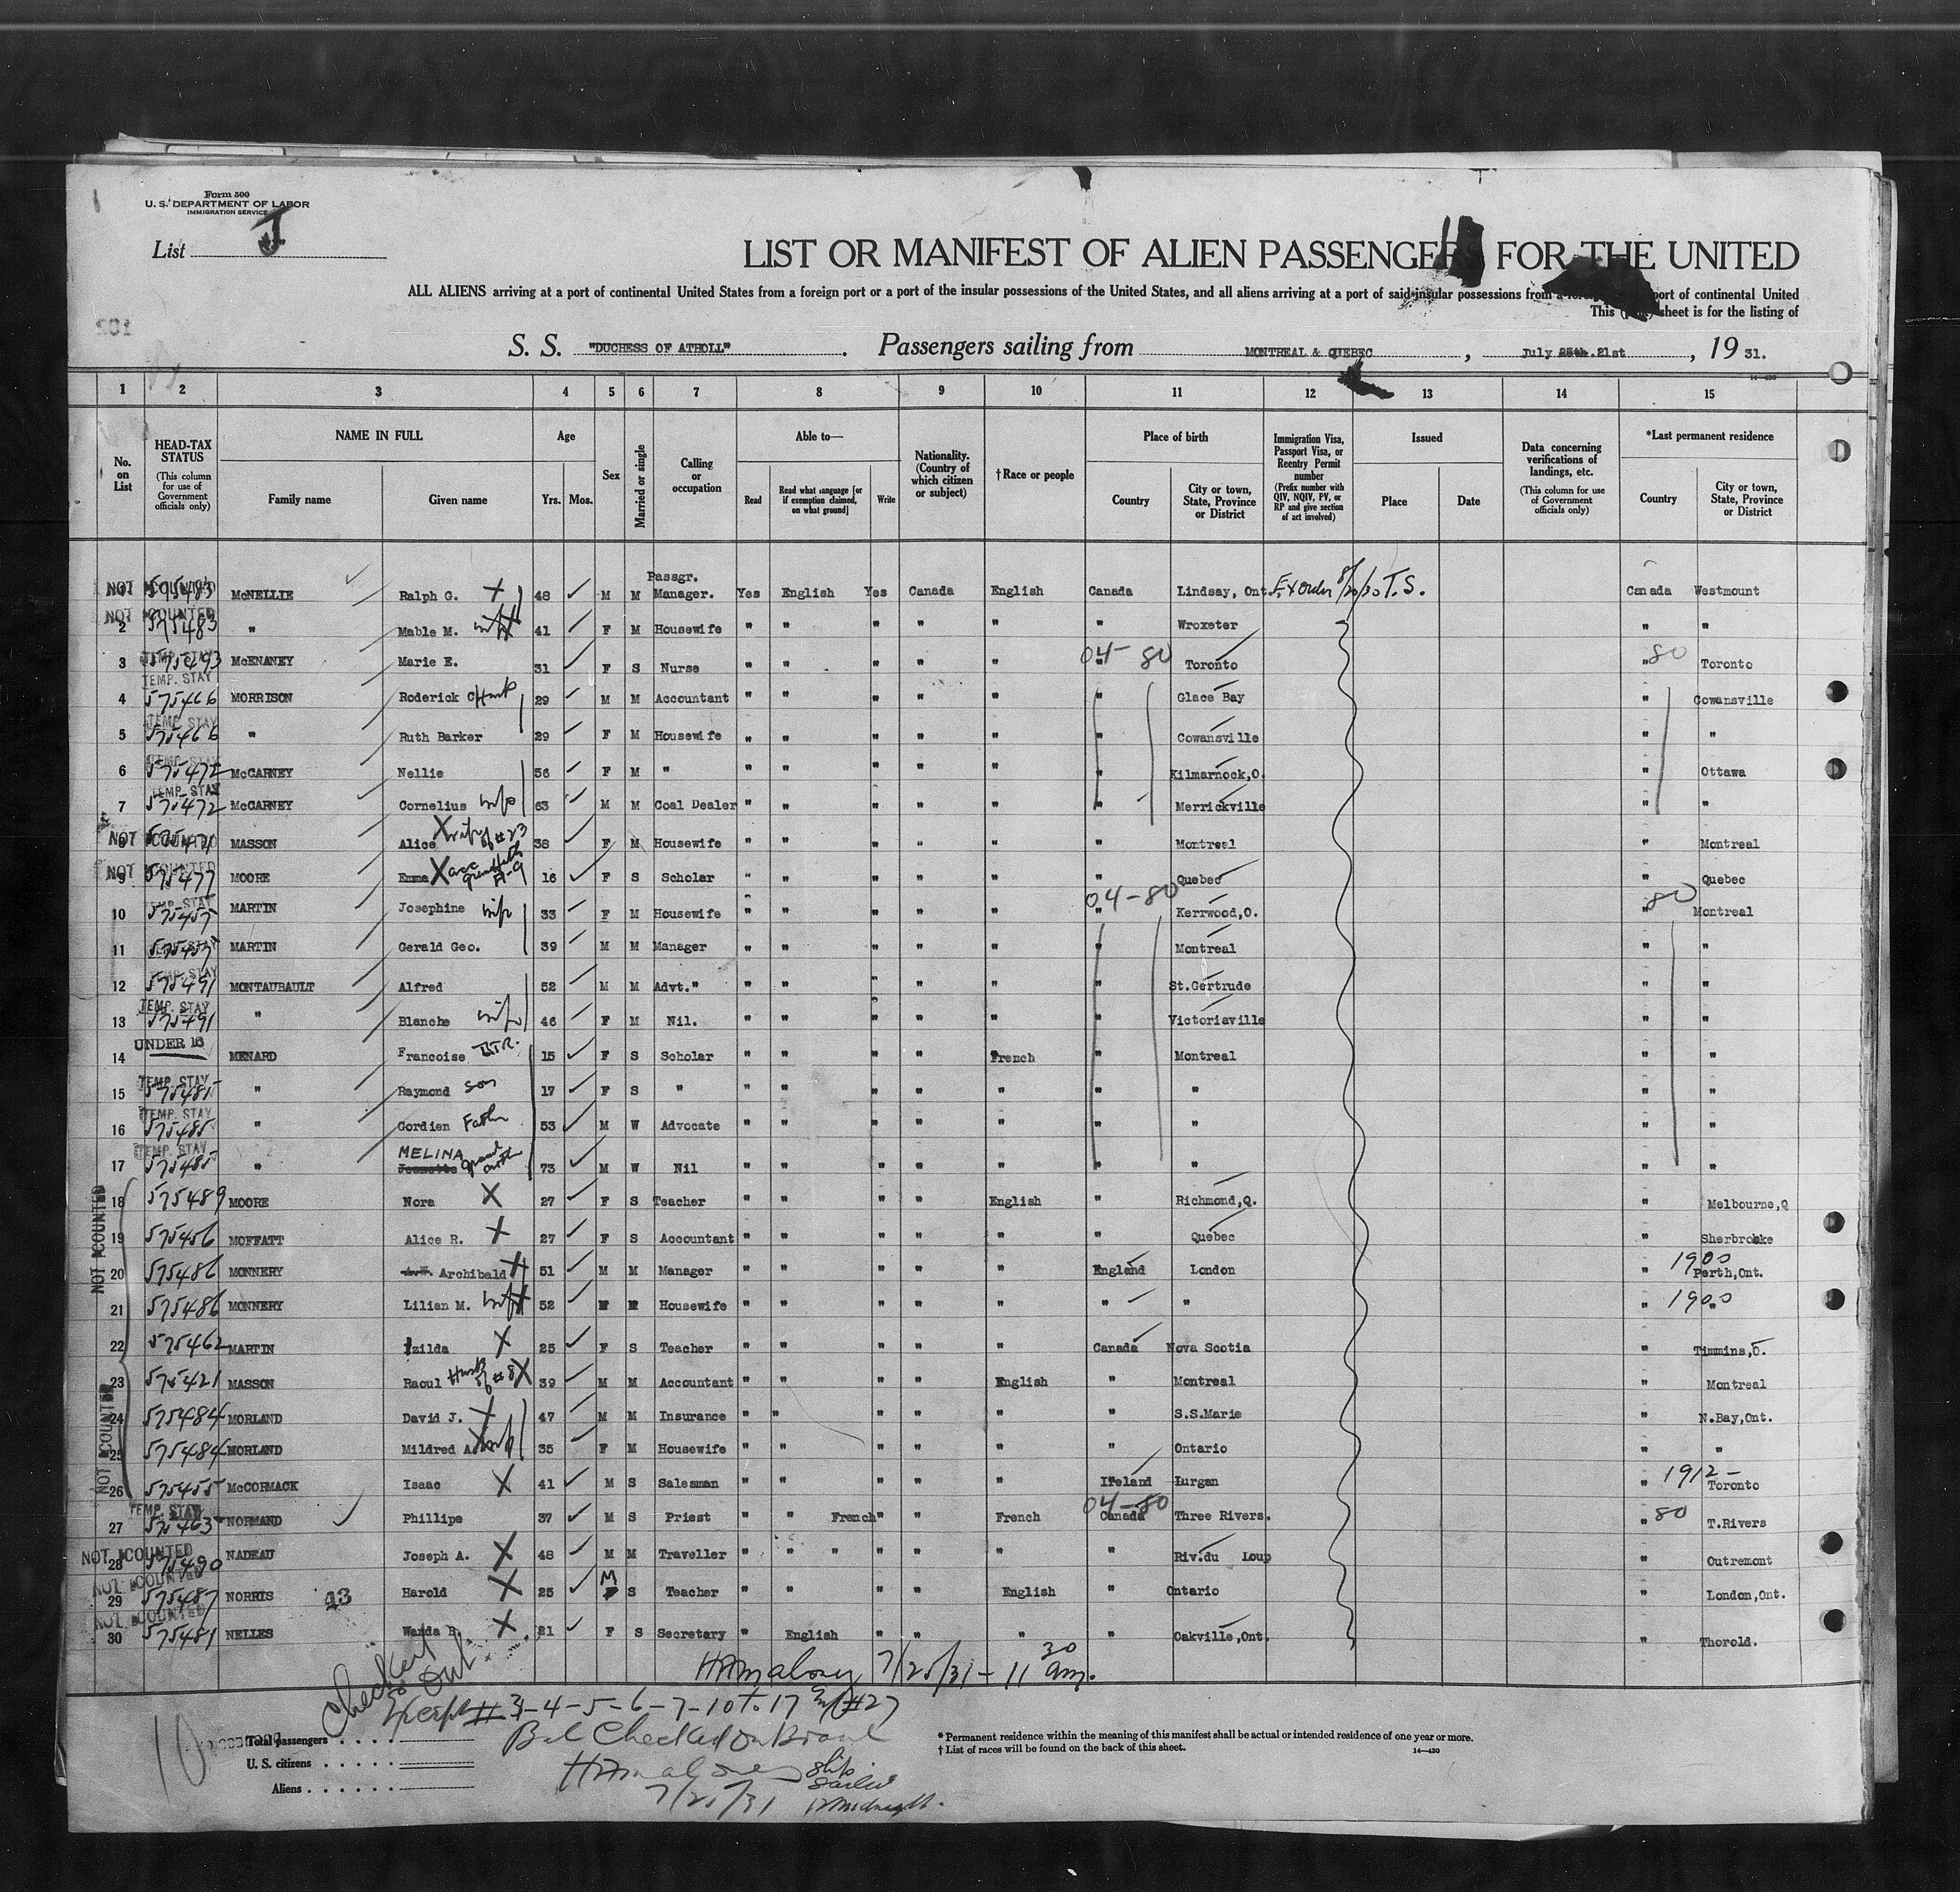 Form 500
U. S. DEPARTMENT OF LABOR
IMMIGRATION SERVICE
List J
LIST OR MANIFEST OF ALIEN PASSENGERS FOR THE UNITED
ALL ALIENS arriving at a port of continental United States from a foreign port or a port of the insular possessions of the United States, and all aliens arriving at a port of said insular possessions from a foreign port of continental United
This sheet is for the listing of
S. S. "DUCHESS OF ATHOLL" . Passengers sailing from MONTREAL & QUEBEC , July 25th. 21st , 19 31.
14—430
1 2 3 4 5 6 7 8 9 10 11 12 13 14 15
No. on List
HEAD-TAX STATUS (This column for use of Government officials only)
NAME IN FULL Family name Given name
Age Yrs. Mos.
Sex
Married or single
Calling or occupation
Able to— Read Read what language [or if exemption claimed, on what ground] Write
Nationality. (Country of which citizen or subject)
† Race or people
Place of birth Country City or town, State, Province or District
Immigration Visa, Passport Visa, or Reentry Permit number (Prefix number with QIV, NQIV, PV, or RP and give section of act involved)
Issued Place Date
Data concerning verifications of landings, etc. (This column for use of Government officials only)
*Last permanent residence Country City or town, State, Province or District
NOT COUNTED McNELLIE Ralph G. X 48 M M Passgr. Manager. Yes English Yes Canada English Canada Lindsay, Ont. Ex Order 8/20/30 T.S. Canada Westmount
NOT COUNTED 2 575483 " Mable M. wife X 41 F M Housewife " " " " " " Wroxeter " "
TEMP. STAY 3 575493 McENANEY Marie E. 31 F S Nurse " " " " " " 04-80 Toronto " 80 Toronto
TEMP. STAY 4 575466 MORRISON Roderick C 29 M M Accountant " " " " " " Glace Bay " Cowansville
TEMP. STAY 5 575466 " Ruth Barker 29 F M Housewife " " " " " " Cowansville " "
TEMP. STAY 6 575472 McCARNEY Nellie 56 F M " " " " " " " Kilmarnock,O. " Ottawa
TEMP. STAY 7 575472 McCARNEY Cornelius 63 M M Coal Dealer " " " " " " Merrickville " "
NOT COUNTED MASSON Alice X wife of #23 38 F M Housewife " " " " " " Montreal " Montreal
NOT COUNTED 9 575477 MOORE Emma X 16 F S Scholar " " " " " " Quebec " Quebec
TEMP. STAY 10 575457 MARTIN Josephine wife 33 F M Housewife " " " " " " 04-80 Kerrwood,O. " 80 Montreal
11 575457 MARTIN Gerald Geo. 39 M M Manager " " " " " " Montreal " "
TEMP. STAY 12 575491 MONTAUBAULT Alfred 52 M M Advt." " " " " " " St.Gertrude " "
TEMP. STAY 13 575491 " Blanche wife 46 F M Nil. " " " " " " Victoriaville " "
UNDER 16 14 MENARD Francoise 15 F S Scholar " " " " French " Montreal " "
TEMP. STAY 15 575485 " Raymond son 17 F S " " " " " " " " " "
TEMP. STAY 16 575485 " Gordien Father 53 M W Advocate " " " " " " " " "
TEMP. STAY 17 575485 " MELINA Jeanette grand mother 73 M W Nil " " " " " " " " "
18 575489 MOORE Nora X 27 F S Teacher " " " " English " Richmond,Q. " Melbourne,Q
19 575456 MOFFATT Alice R. X 27 F S Accountant " " " " " " Quebec " Sherbrooke
20 575486 MONNERY A.W. Archibald X 51 M M Manager " " " " " England London " 1900 Perth,Ont.
21 575486 MONNERY Lilian M. wife X 52 Housewife " " " " " " " " 1900 "
22 575462 MARTIN Izilda X 25 F S Teacher " " " " " Canada Nova Scotia " Timmins,O.
23 575421 MASSON Raoul Husb of #8 X 39 M M Accountant " " " " English " Montreal " Montreal
24 575484 MORLAND David J. X 47 M M Insurance " " " " " " S.S.Marie " N.Bay,Ont.
25 575484 MORLAND Mildred A. X wife 35 F M Housewife " " " " " " Ontario " "
26 575455 McCORMACK Isaac X 41 M S Salesman " " " " " Ireland Lurgan " 1912 - Toronto
NOT COUNTED
NOT COUNTED
TEMP. STAY 27 NORMAND Phillipe 37 M S Priest " " French " " French 04-80 Canada Three Rivers. " 80 T.Rivers
NOT COUNTED 28 575490 NADEAU Joseph A. X 48 M M Traveller " " " " " " " Riv.du Loup " Outremont
NOT COUNTED 29 575487 NORRIS 43 Harold X 25 M S Teacher " " " " English " Ontario " London,Ont.
NOT COUNTED 30 575481 NELLES Wanda B. X 21 F S Secretary " English " " " " Oakville,Ont. " Thorold.
HAMaloney 7/25/31 - 11 30 am.
Checked Out
Except # 3-4-5-6-7-10 to 17 #27
Bal Checked on Board
HAMaloney 7/21/31
Ship Sailed 12 midnight.
10
Total passengers . . . .
U. S. citizens . . . . .
Aliens . . . . . .
* Permanent residence within the meaning of this manifest shall be actual or intended residence of one year or more.
† List of races will be found on the back of this sheet.
14—430